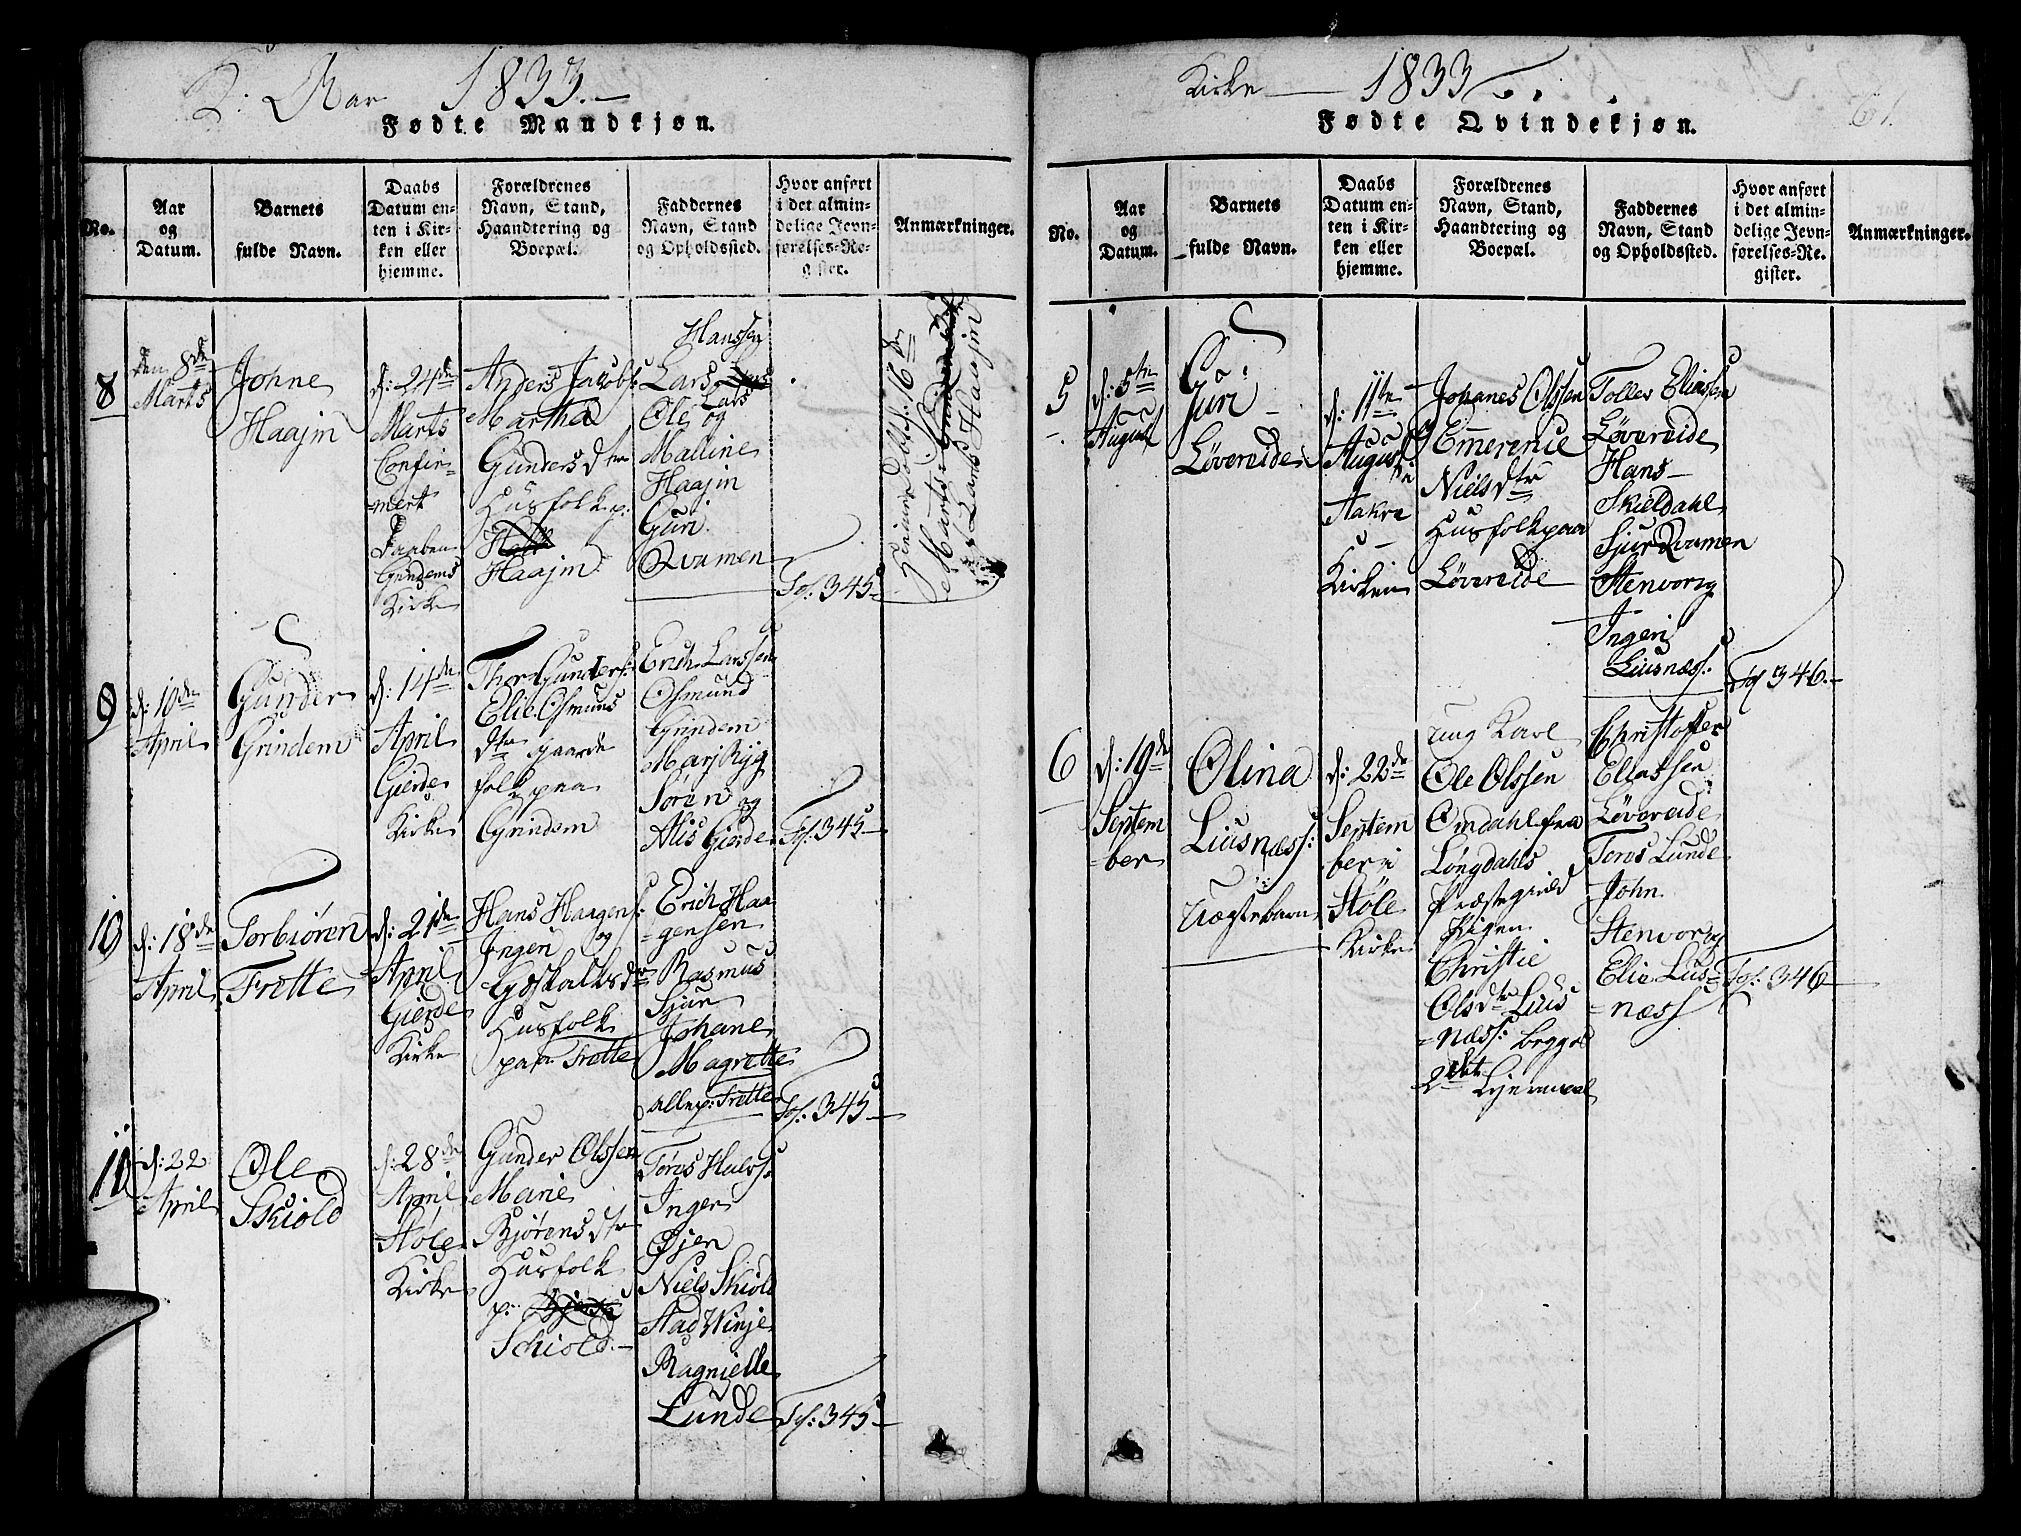 2: Aar 1833.
Fødte Mandkjøn.
No.
Aar
og
Datum.
Barnets
fulde Navn.
Daabs
Datum en-
ten i Kir-
ken eller
hjemme.
Forældrenes
Navn, Stand,
Haandtering og
Boepæl.
Faddernes
Navn, Stand
og Opholdssted.
Hvor anført
i det almin-
delige Jevn-
førelses-Re-
gister.
Anmærkninger.
8
den 8de
Marts
Johne
Haajm
d: 24de
Marts
Confir-
mert
Gindems
Kirke
Anders Jacobs:
Martha
Gundersdtr
Husfolk p:
Haajm
Hanssen
Lars
Lars
Ole og
Malline
Haajm
Guri
Qvamen
Fol. 345
16de
Marts
Lars Haajm
9
d: 10de
April
Gunder
Grindem
d: 14de
April
Gierde
Kirke
Thor Gunders:
Elie Osmunds
dtr gaarde
folk paa
Grindem
Erich Larssen
Osmund
Grindem
Marj Ryg
Søren og
Alis Gierde
Fol. 345
10
d: 18de
April
Torbiøren
Frette
d: 21de
April
Gierde
Kirke
Hans Haagens:
Ingeri og
Goskalksdtr
Husfolk
paa Frette
Erich Haa
=gensen
Rasmus
Sjur
Johane
Magrette
alle p: Frette
Fol. 345
11
d: 22
April
Ole
Skiold
d: 28de
April
Støle
Kirke
Gunder Olssen
Marie
Bjørensdtr
Husfolk
p:
Schiold
Tøres Halvs:
Inger
Øjen
Niels Skiold
Aad Winje
Ragnielle
Lunde
Fol. 345
Kirke 1833
61.
Fødte Qvindekjøn.
No.
Aar
og
Datum.
Barnets
fulde Navn.
Daabs
Datum en-
ten i Kir-
ken eller
hjemme.
Forældrenes
Navn, Stand,
Haandtering og
Boepæl.
Faddernes
Navn, Stand
og Opholdssted.
Hvor anført
i det almin-
delige Jevn-
førelses-Re-
gister.
Anmærkninger.
5
d: 5te
August
Guri
Løvereide
d: 11te
August
i
Aakra
Kirken
Johanes Olssen
og Emerence
Nielsdtr
Husfolk paa
Løvereide
Tolles Eliassen
Løvereide
Hans
Skieldahl
Sjur Qvamen
Stenvor og
Ingeri
Liusnæss:
Fol 346.
6
d: 19de
September
=ber
Olina
Liusnæss:
Uægtebarn
d: 22de
Septem
ber i
Støle
Kirke
ung Karl
Ole Olssen
Omdahl fra
Løngdahls
Præstegield
Pigen
Christie
Olsdtr Lius
=næss: begge
2det Leiermaal
Christoffer
Eliassen
Løvereide
Tores Lunde
John
Stenvor og
Elie Lius=
=næss
Fol. 346